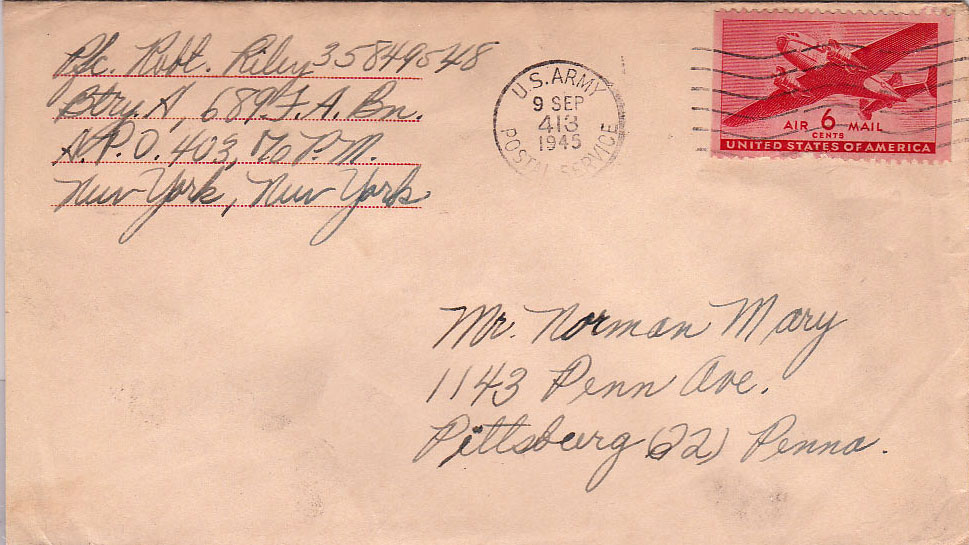 Pfc. Robt. Riley 35849548
Btry. A, 689 F.A. Bn.
A.P.O. 403, % P.M.
New York, New York
U.S. ARMY
9 SEP
413
1945
POSTAL SERVICE
AIR 6 MAIL
CENTS
UNITED STATES OF AMERICA
Mr. Norman Mary
1143 Penn Ave.
Pittsburg (22) Penna.